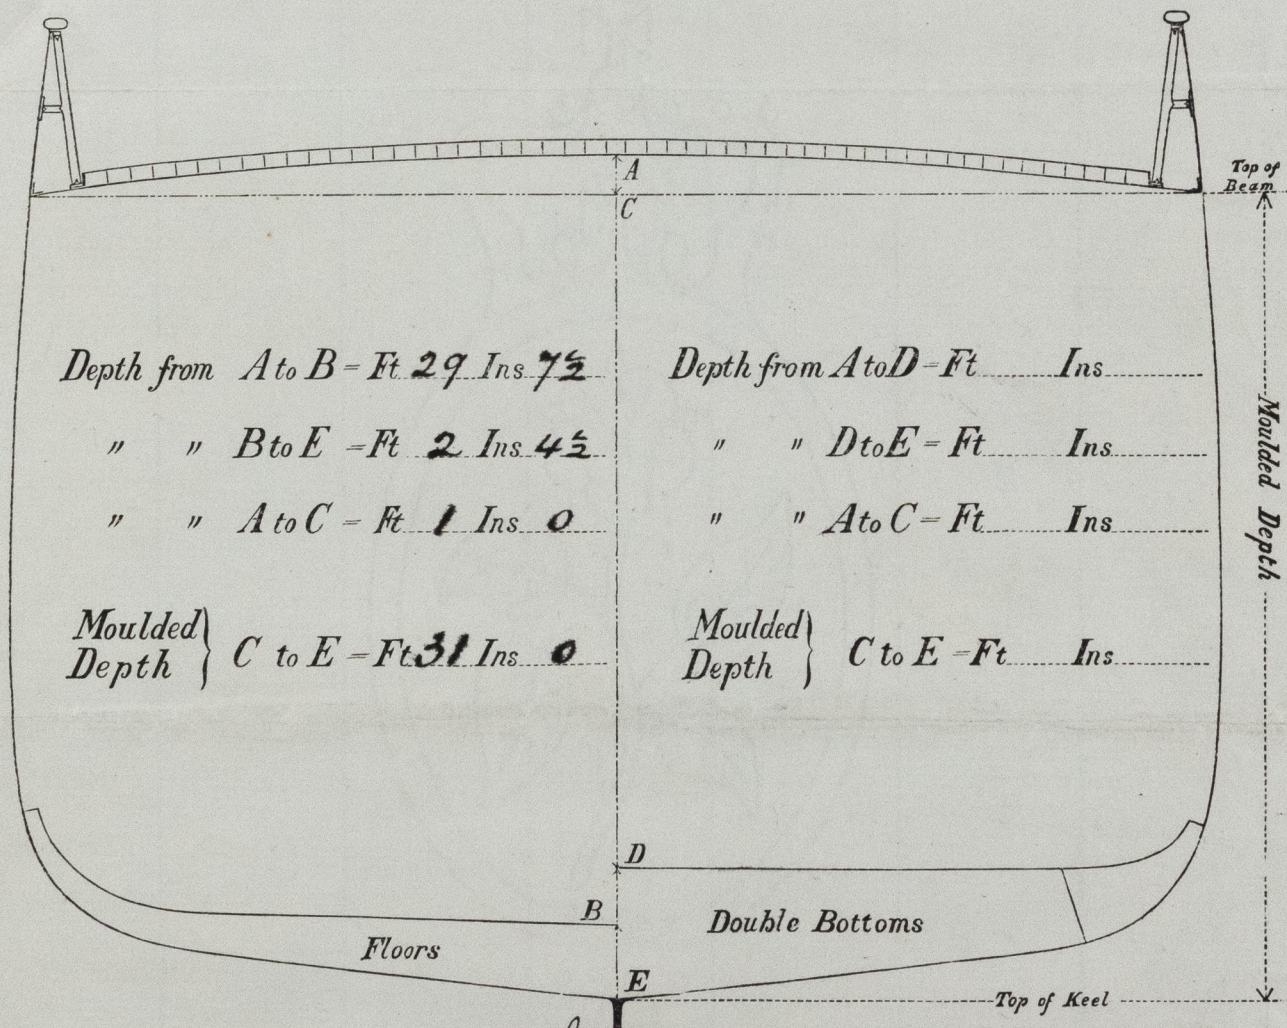 A
Top of
Beam
C
Depth from A to B = Ft 29 Ins 7½
" " B to E = Ft 2 Ins 4½
" " A to C = Ft 1 Ins 0
Moulded
Depth } C to E = Ft 31 Ins 0
Depth from A to D = Ft Ins
" " D to E = Ft Ins
" " A to C = Ft Ins
Moulded
Depth } C to E = Ft Ins
Moulded Depth
D
B
Double Bottoms
Floors
E
Top of Keel